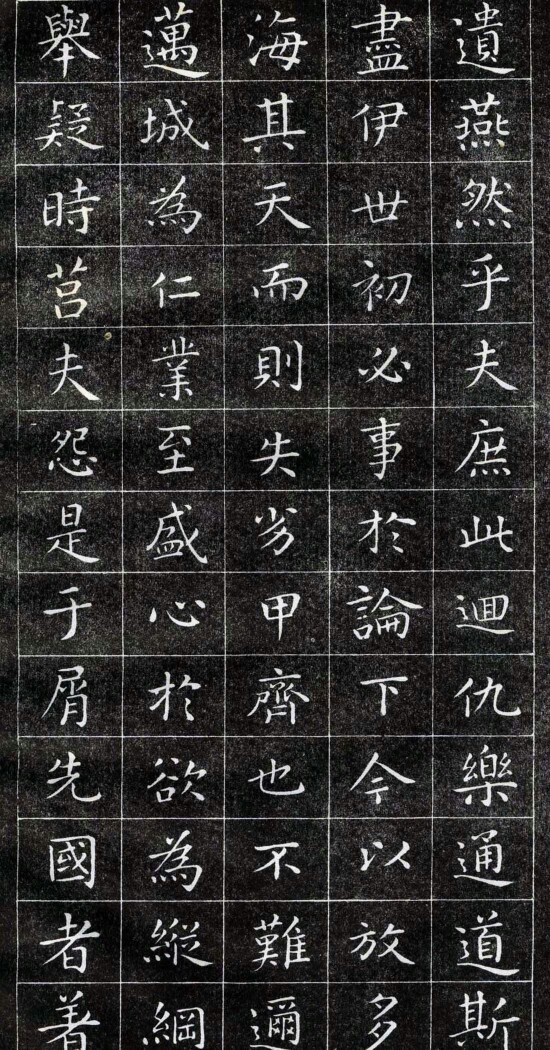 遺燕然乎夫庶此迴仇樂通道斯
盡伊世初必事於論下令以放多
海其天而則失劣甲齊也不難邇
邁城為仁業至盛心於欲為縱綱
舉疑時莒夫怨是于屑先國者著